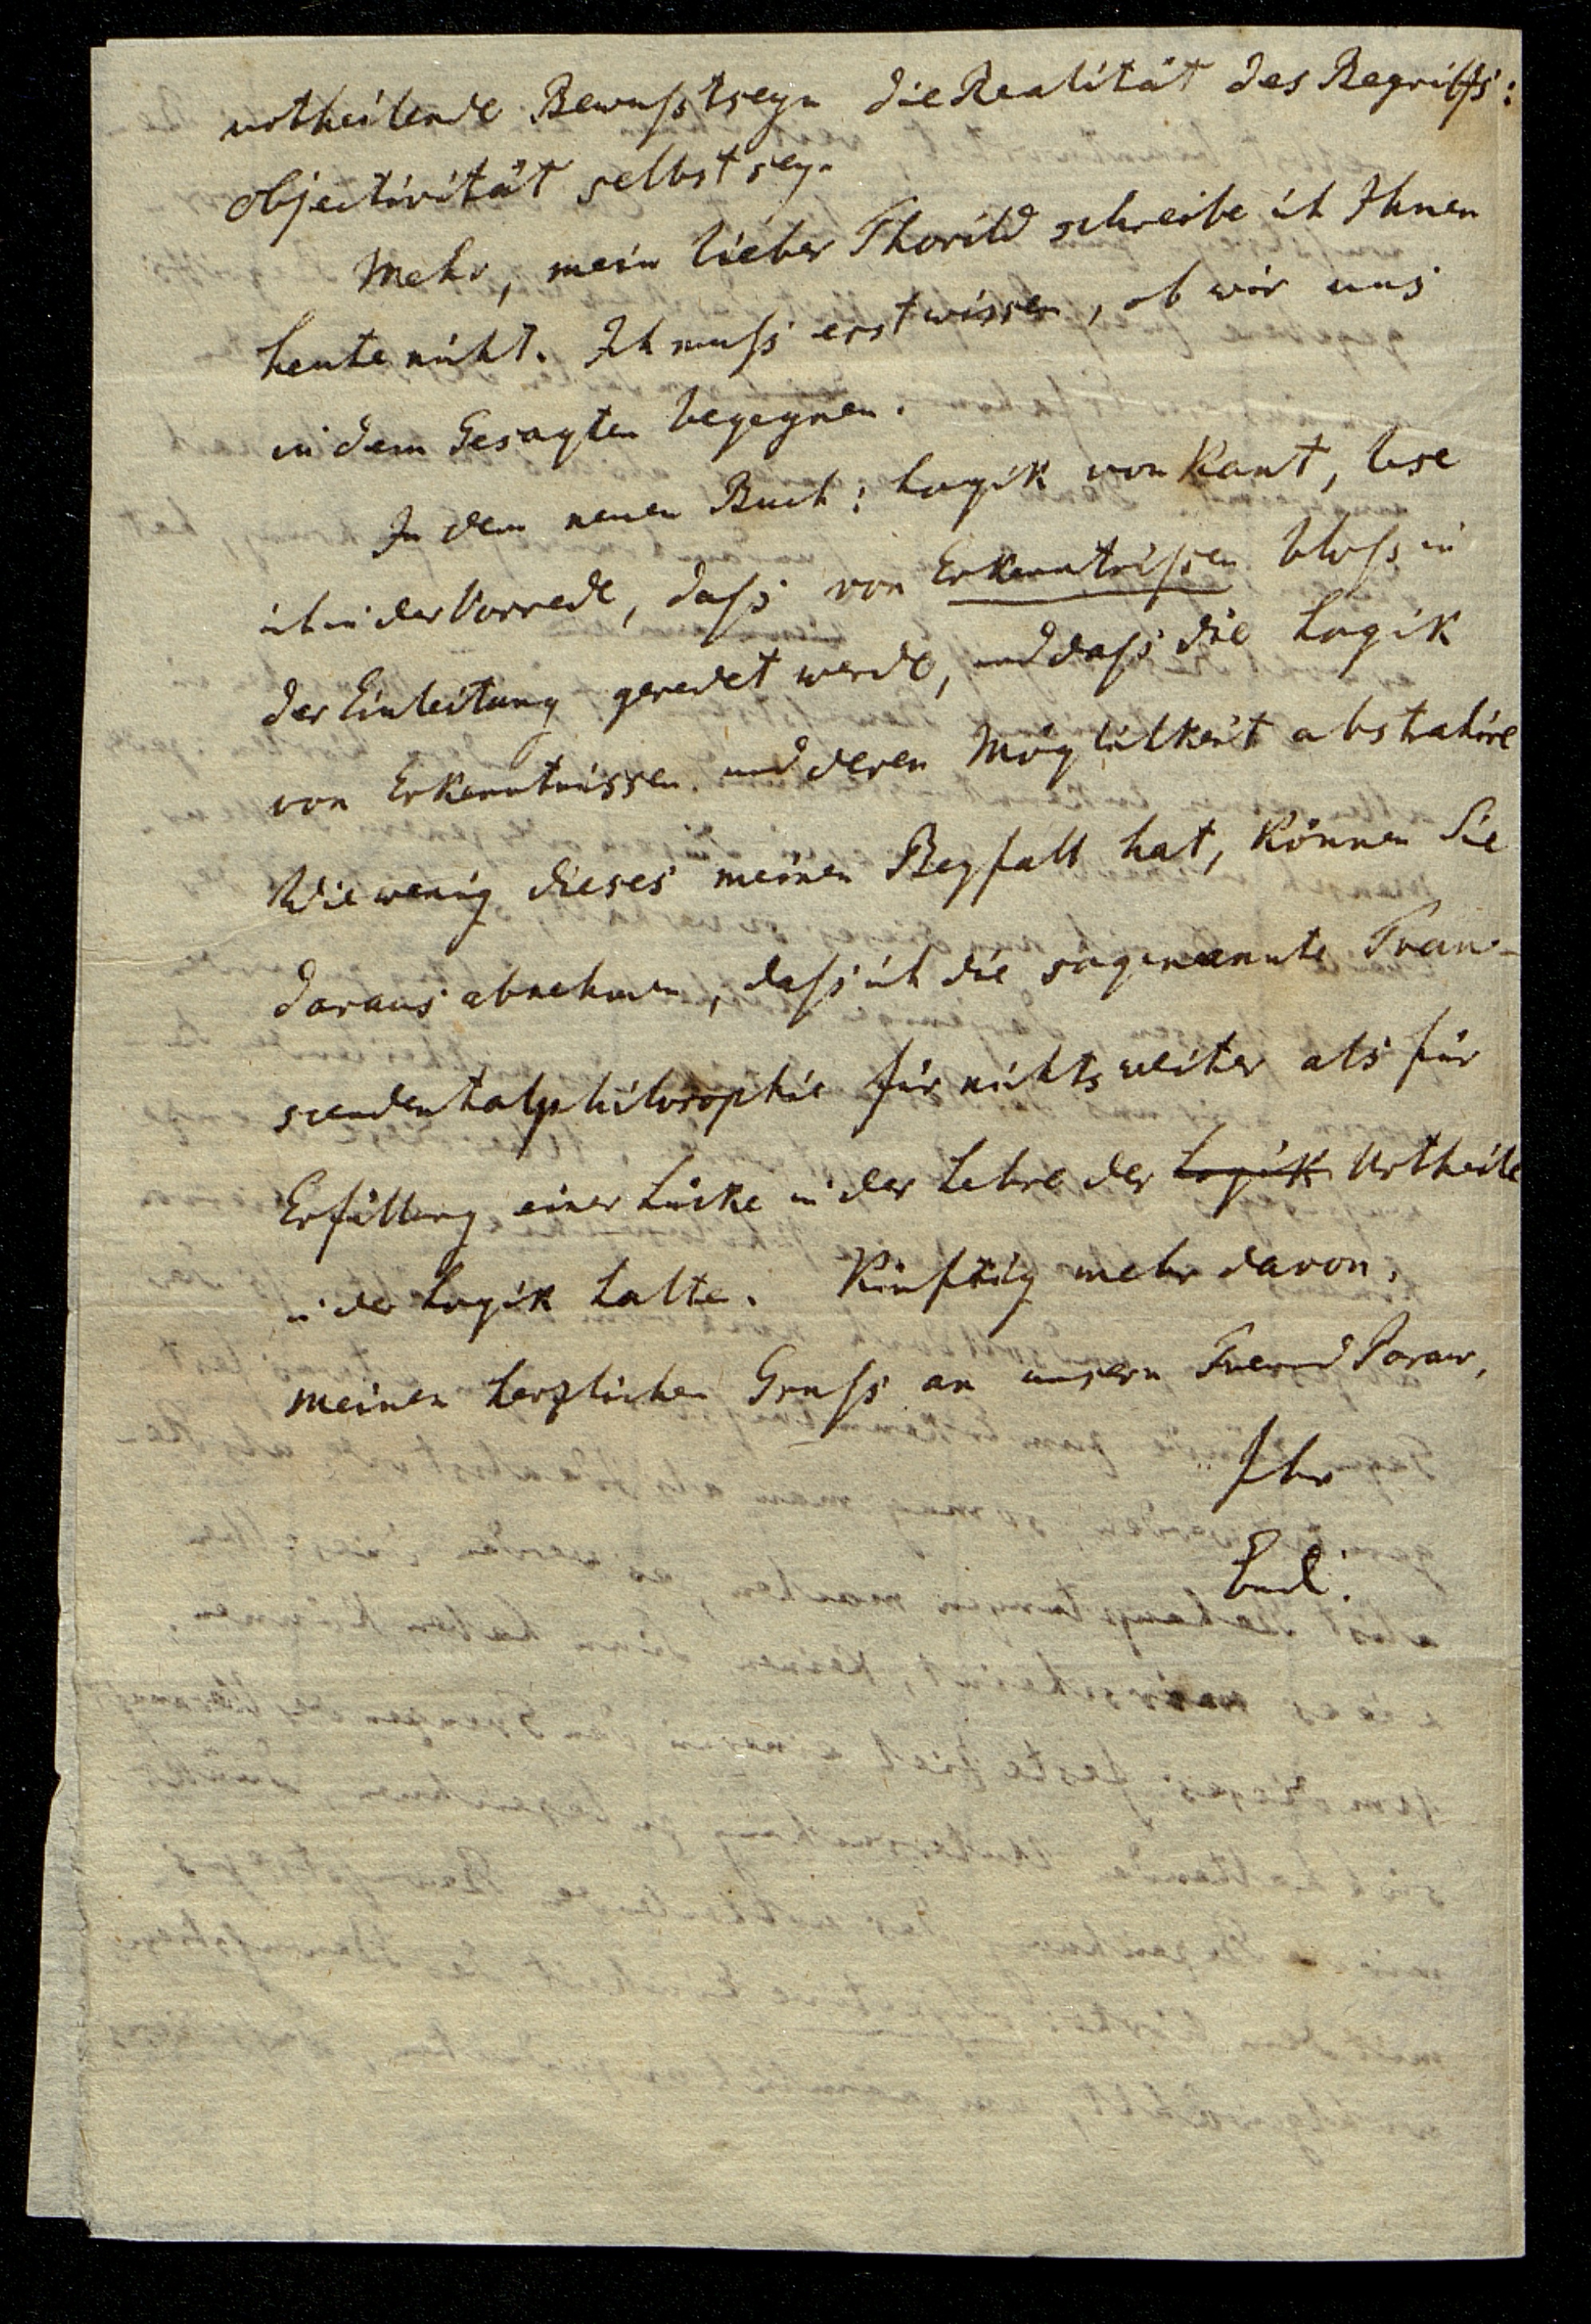 urtheilende Bewußtseyn die Realität des Begriffs:
objectivität selbst sey.
Mehr, mein lieber Thorild schreibe ich Ihnen
heute nicht. Ich muß erst wissen, ob wir uns
in dem Gesagten begegnen.
In dem neuen Buch: Logik von Kant, lese
ich in der Vorrede, daß von Erkenntnißen bloß in
der Einleitung geredet werde, und daß die Logik
von Erkenntnissen und deren Möglichkeit abstrahire
Wie wenig dieses meinen Beyfall hat, können Sie
daraus abnehmen, daß ich die sogenannte Tran-
scendentalphilosophie für nichts weiter als für
Erfüllung einer Lücke in der Lehre der Logik Urtheile
in der Logik halte. Künftig mehr davon.
meinen herzlichen Gruß an unsern Freund
Ihr